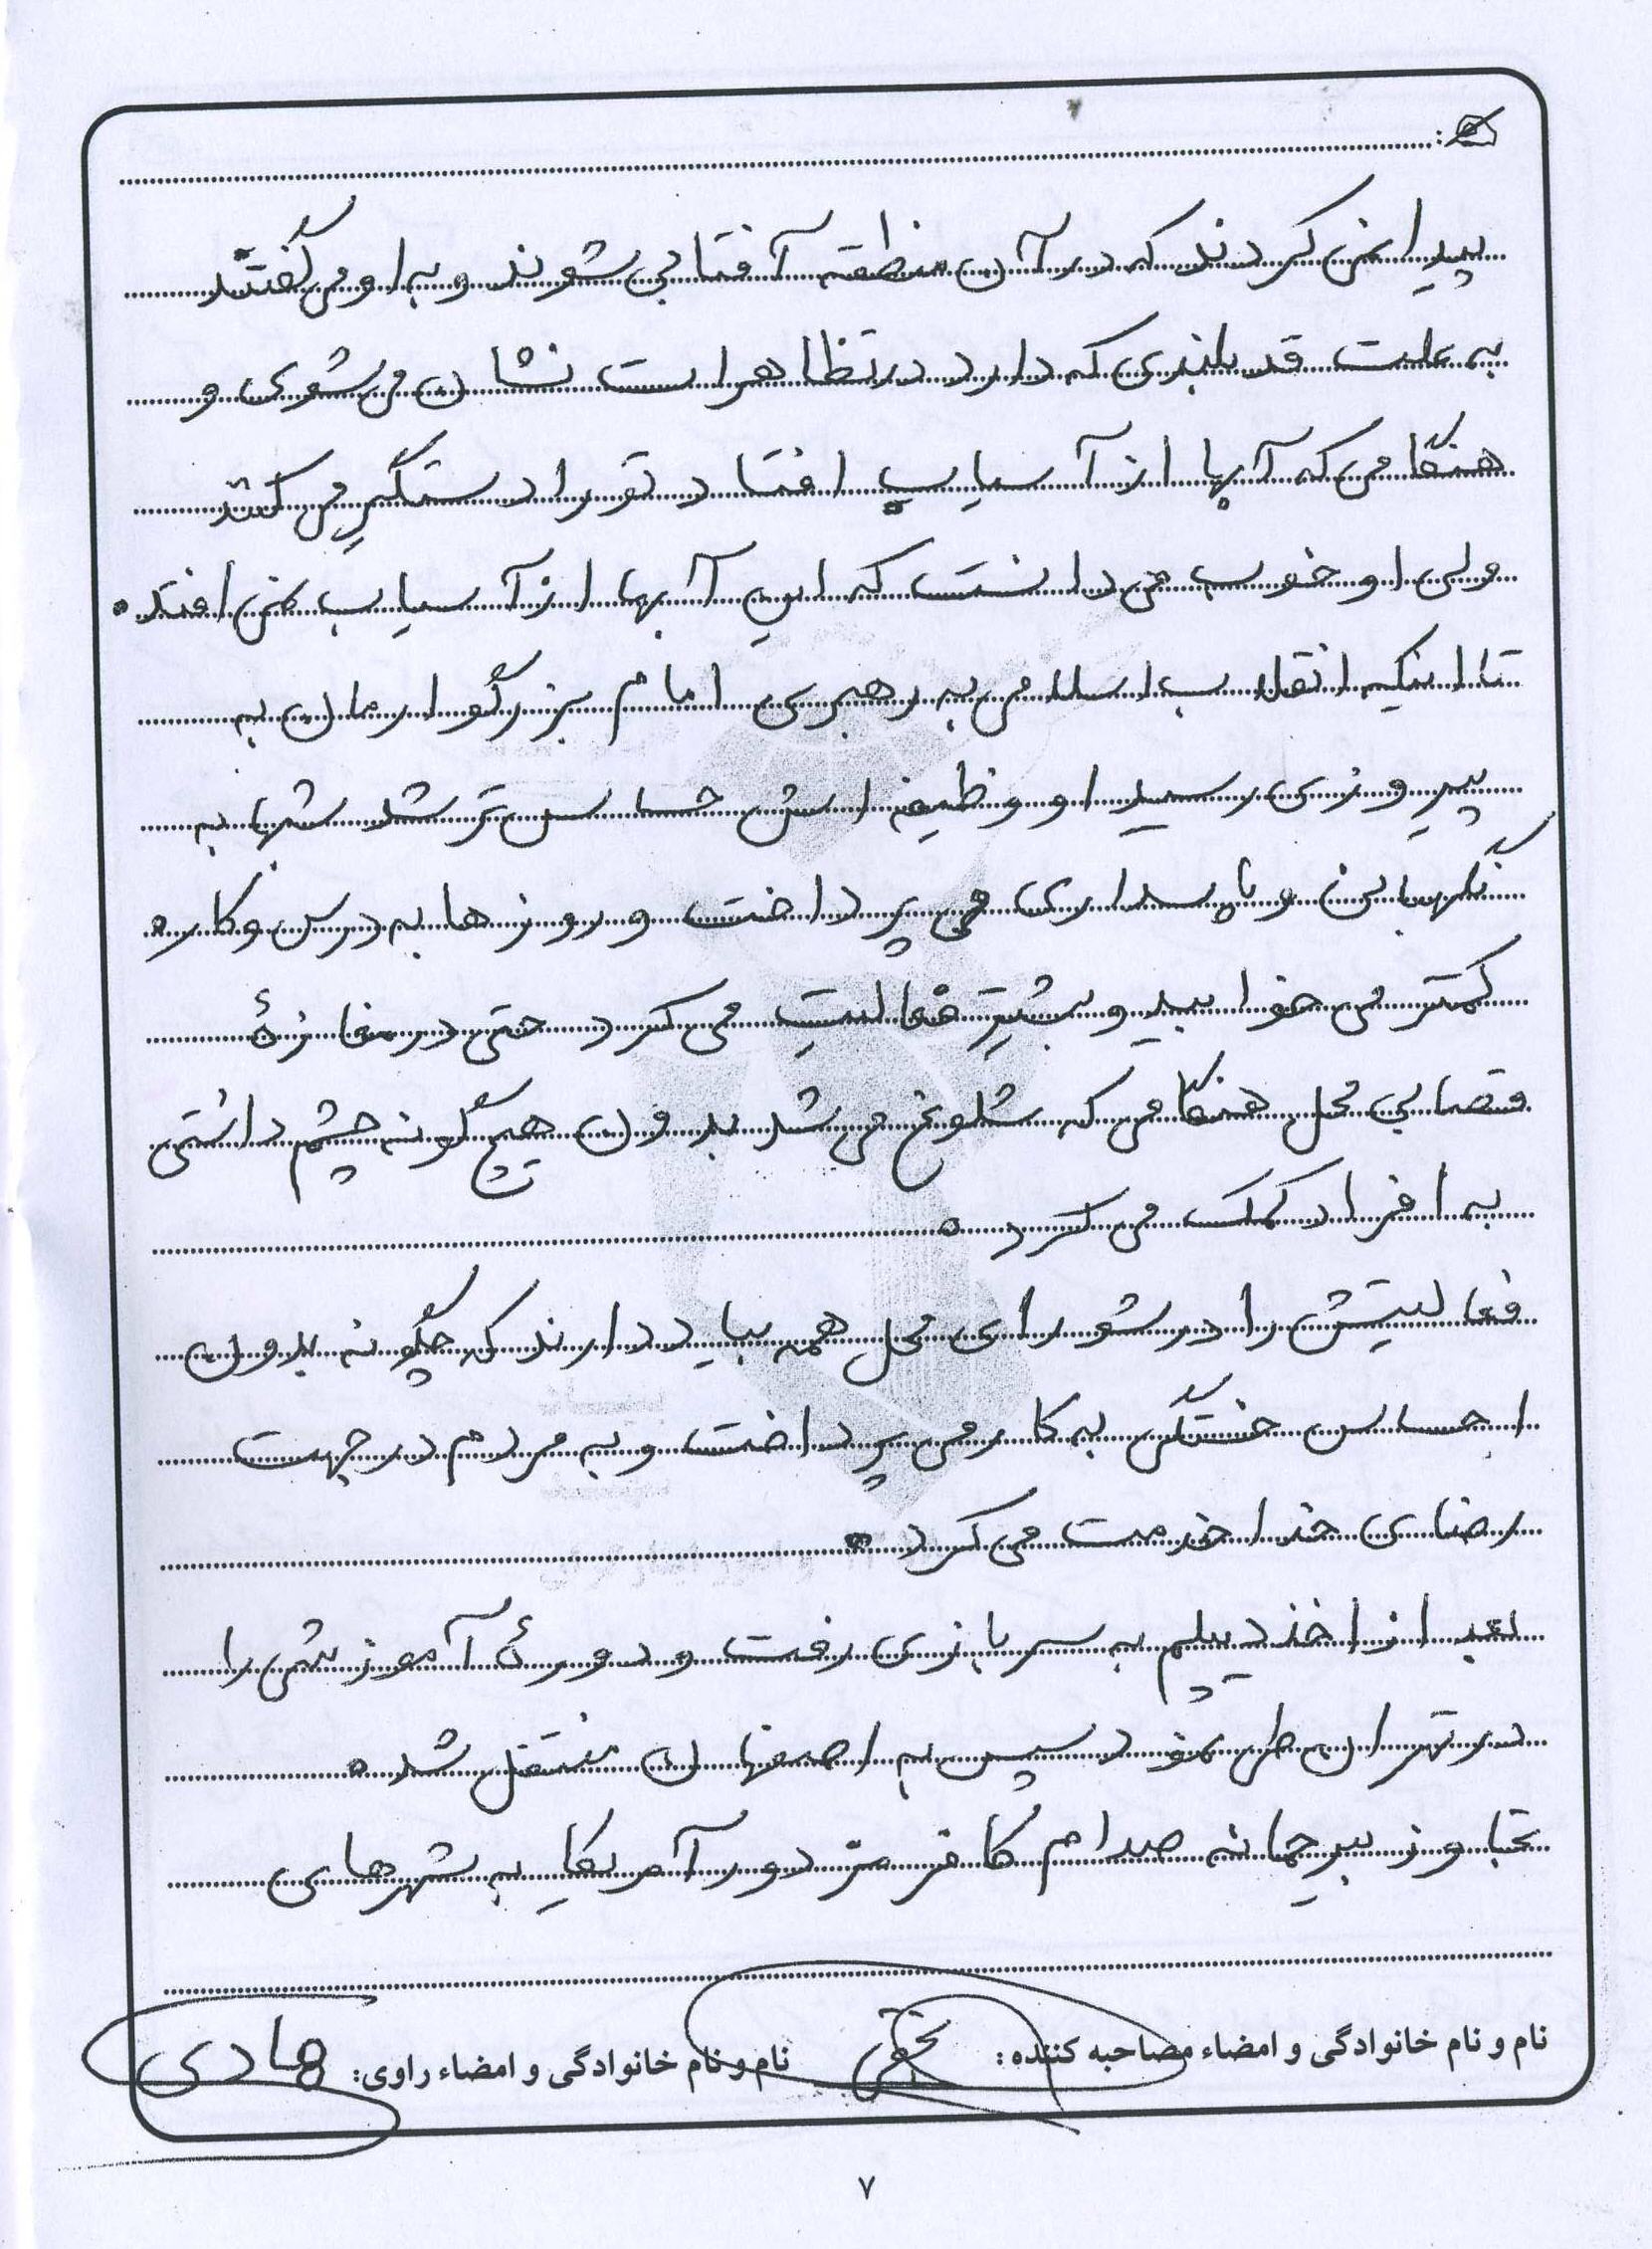 پیدا نمی کردند که در آن منطقه آفتابی شوند و به او می گفتند
به علت قد بلندی که دارد در تظاهرات نشان می شوی و
هنگامی که آبها از آسیاب افتاد تو را دستگیر می کنند
ولی او خوب می دانست که این آبها از آسیاب نمی افتد.
تا اینکه انقلاب اسلامی به رهبری امام بزرگوارمان به
پیروزی رسید او وظیفه اش حساس تر شد شبها به
نگهبانی و پاسداری می پرداخت و روزها به درس و کار.
کمتر می خوابید و بیشتر فعالیت می کرد حتی در مغازهٔ
قصابی محل هنگامی که شلوغ می شد بدون هیچ گونه چشم داشتی
به افراد کمک می کرد.
فعالیتش را در شورای محل همه بیاد دارند که چگونه بدون
احساس خستگی به کار می پرداخت و به مردم در جهت
رضای خدا خدمت می کرد.
بعد از اخذ دیپلم به سربازی رفت و دورهٔ آموزشی را
در تهران طی نمود سپس به اصفهان منتقل شد.
تجاوز بیرحمانه صدام کافر مزدور آمریکا به شهرهای
نام و نام خانوادگی و امضاء مصاحبه کننده: نام و نام خانوادگی و امضاء راوی: هادی
۷